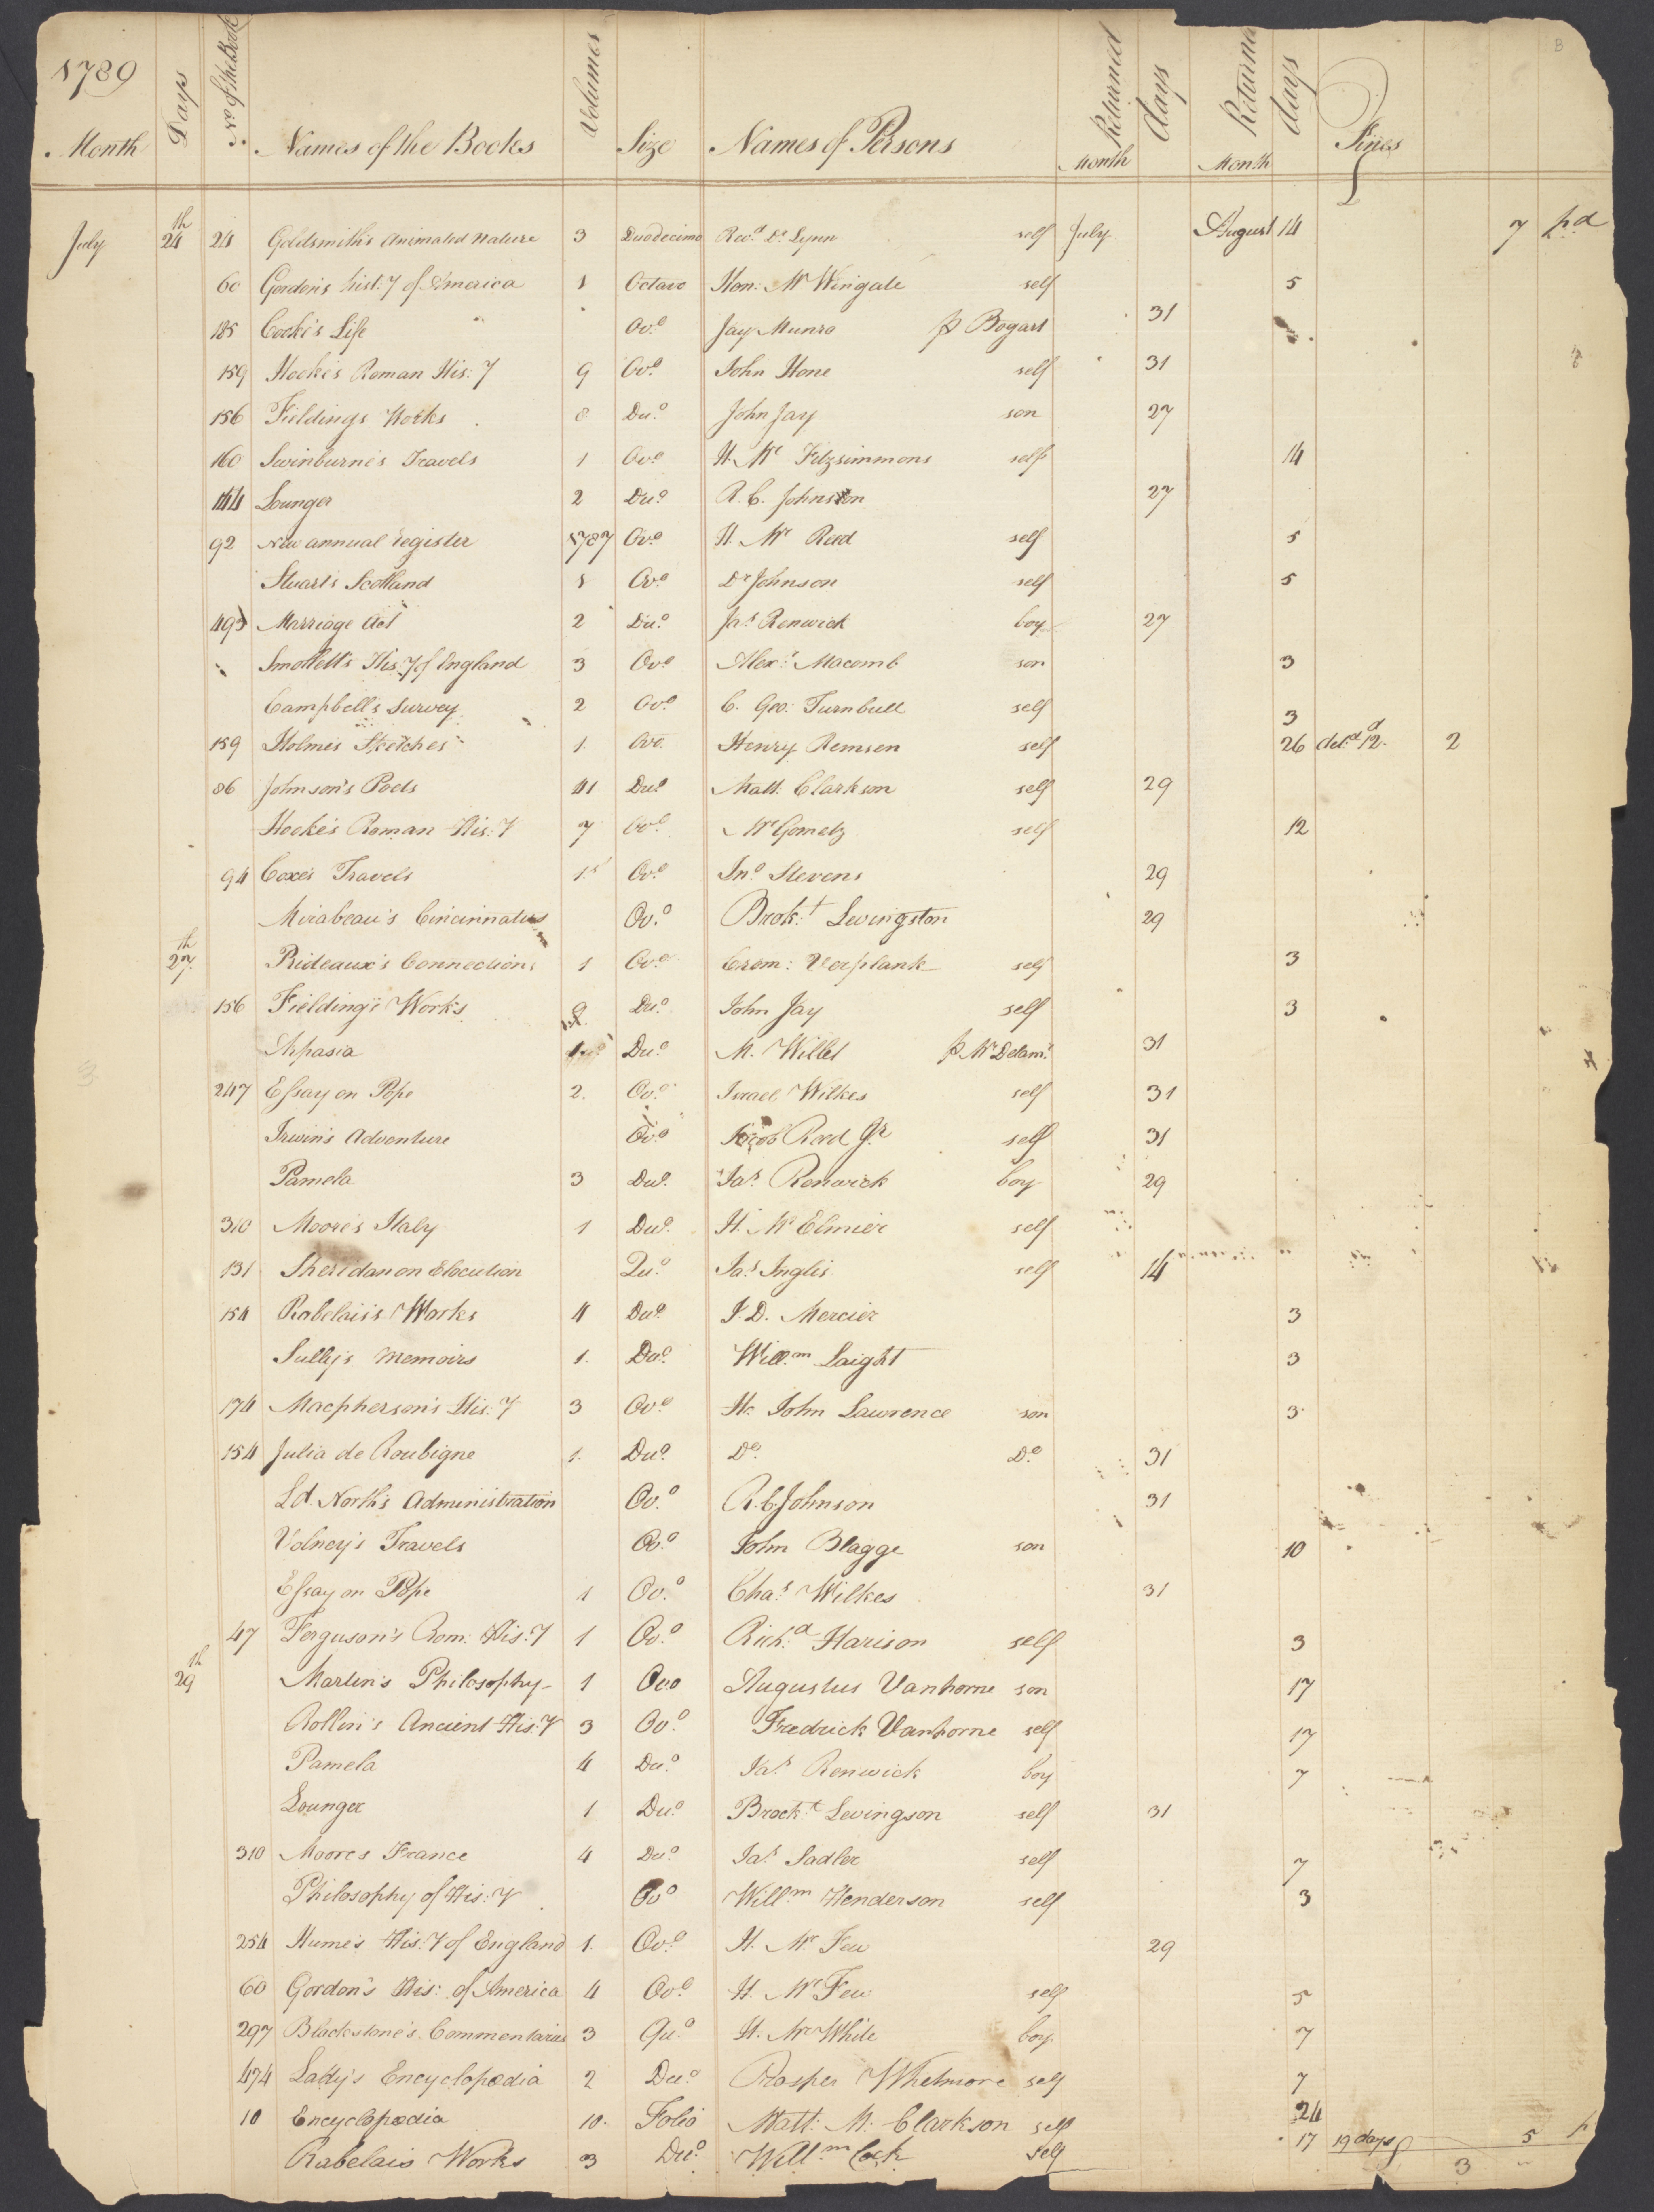 1789
Month Days No of the Book Names of the Books Volumes Size Names of Persons Returned Month days Returned Month days Fines
July 24th 24 Goldsmith's Animated Nature 3 Duodecimo Revd Dr Lynn self July August 14 7 pd
60 Gordon's hist:y of America 1 Octavo Hon: Mr Wingate self 5
185 Cook's Life Ovo Jay Munro p Bogart 31
159 Hooke's Roman His:y 9 Ovo John Hone self 31
156 Fieldings Works 8 Duo John Jay son 27
160 Swinburne's Travels 1 Ovo H. Mr Fitzsimmons self 14
144 Lounger 2 Duo R. C. Johnston 27
92 New annual register 1787 Ovo H. Mr Read self 5
Stuart's Scotland 1 Ovo Dr Johnson self 5
493 Marriage Act 2 Duo Jas Renwick boy 27
Smollett's His:y of England 3 Ovo Alexr Macomb son 3
Campbell's Survey 2 Ovo C. Geo: Turnbull self 3
159 Holmes Sketches 1. Ovo Henry Remsen self 26 detd 12d. 2
86 Johnson's Poets 41 Duo Matt: Clarkson self 29
Hooke's Roman His:y 7 Ovo Mr Gometz self 12
94 Coxe's Travels 1st Ovo Jno Stevens 29
Mirabeau's Cincinnatus Ov.o Brok:t Levingston 29
27th Prideaux's Connections 1 Ovo Crom: Verplank self 3
156 Fielding's Works Duo John Jay self 3
Aspasia Duo M. Willet p Mr Delamr 31
247 Essay on Pope 2. Ovo Israel Wilkes self 31
Irwin's Adventure Ovo Jacob Read Jr self 31
Pamela 3 Duo Jas Renwick boy 29
310 Moore's Italy 1 Duo H. Mr Elmier self
131 Sheridan on Elocution Quo Jas Inglis self 14
154 Rabelais's Works 4 Duo J. D. Mercier 3
Sully's Memoirs 1. Duo Will:m Laight 3
174 Macpherson's His:y 3 Ovo H. John Lawrence son 3
154 Julia de Roubigne 1. Duo Do Do 31
Ld North's Administration Ov.o R. C. Johnson 31
Volney's Travels Ov.o John Blagge son 10
Essay on Pope 1 Ov.o Chas Wilkes 31
47 Ferguson's Rom: His:y 1 Ov.o Rich:d Harison self 3
29th Martin's Philosophy 1 Ovo Augustus Vanhorne son 17
Rollin's Ancient His:y 3 Ovo Fredrick Vanhorne self 17
Pamela 4 Duo Jas Renwick boy 7
Lounger 1 Duo Brock:t Levingson self 31
310 Moores France 4 Duo Jas Sadler self 7
Philosophy of His:y Ovo Will:m Henderson self 3
254 Hume's His:y of England 1. Ovo H. Mr Few 29
60 Gordon's His: of America 4 Ovo H. Mr Few self 5
297 Blackstone's Commentaries 3 Quo H. Mr White boy 7
474 Lady's Encyclopædia 2 Duo Prosper Whetmore self 7
10 Encyclopædia 10. Folio Matt: M: Clarkson self 24
Rabelais Works 3 Duo Will:m Cock self 17 19 days 5 p
3